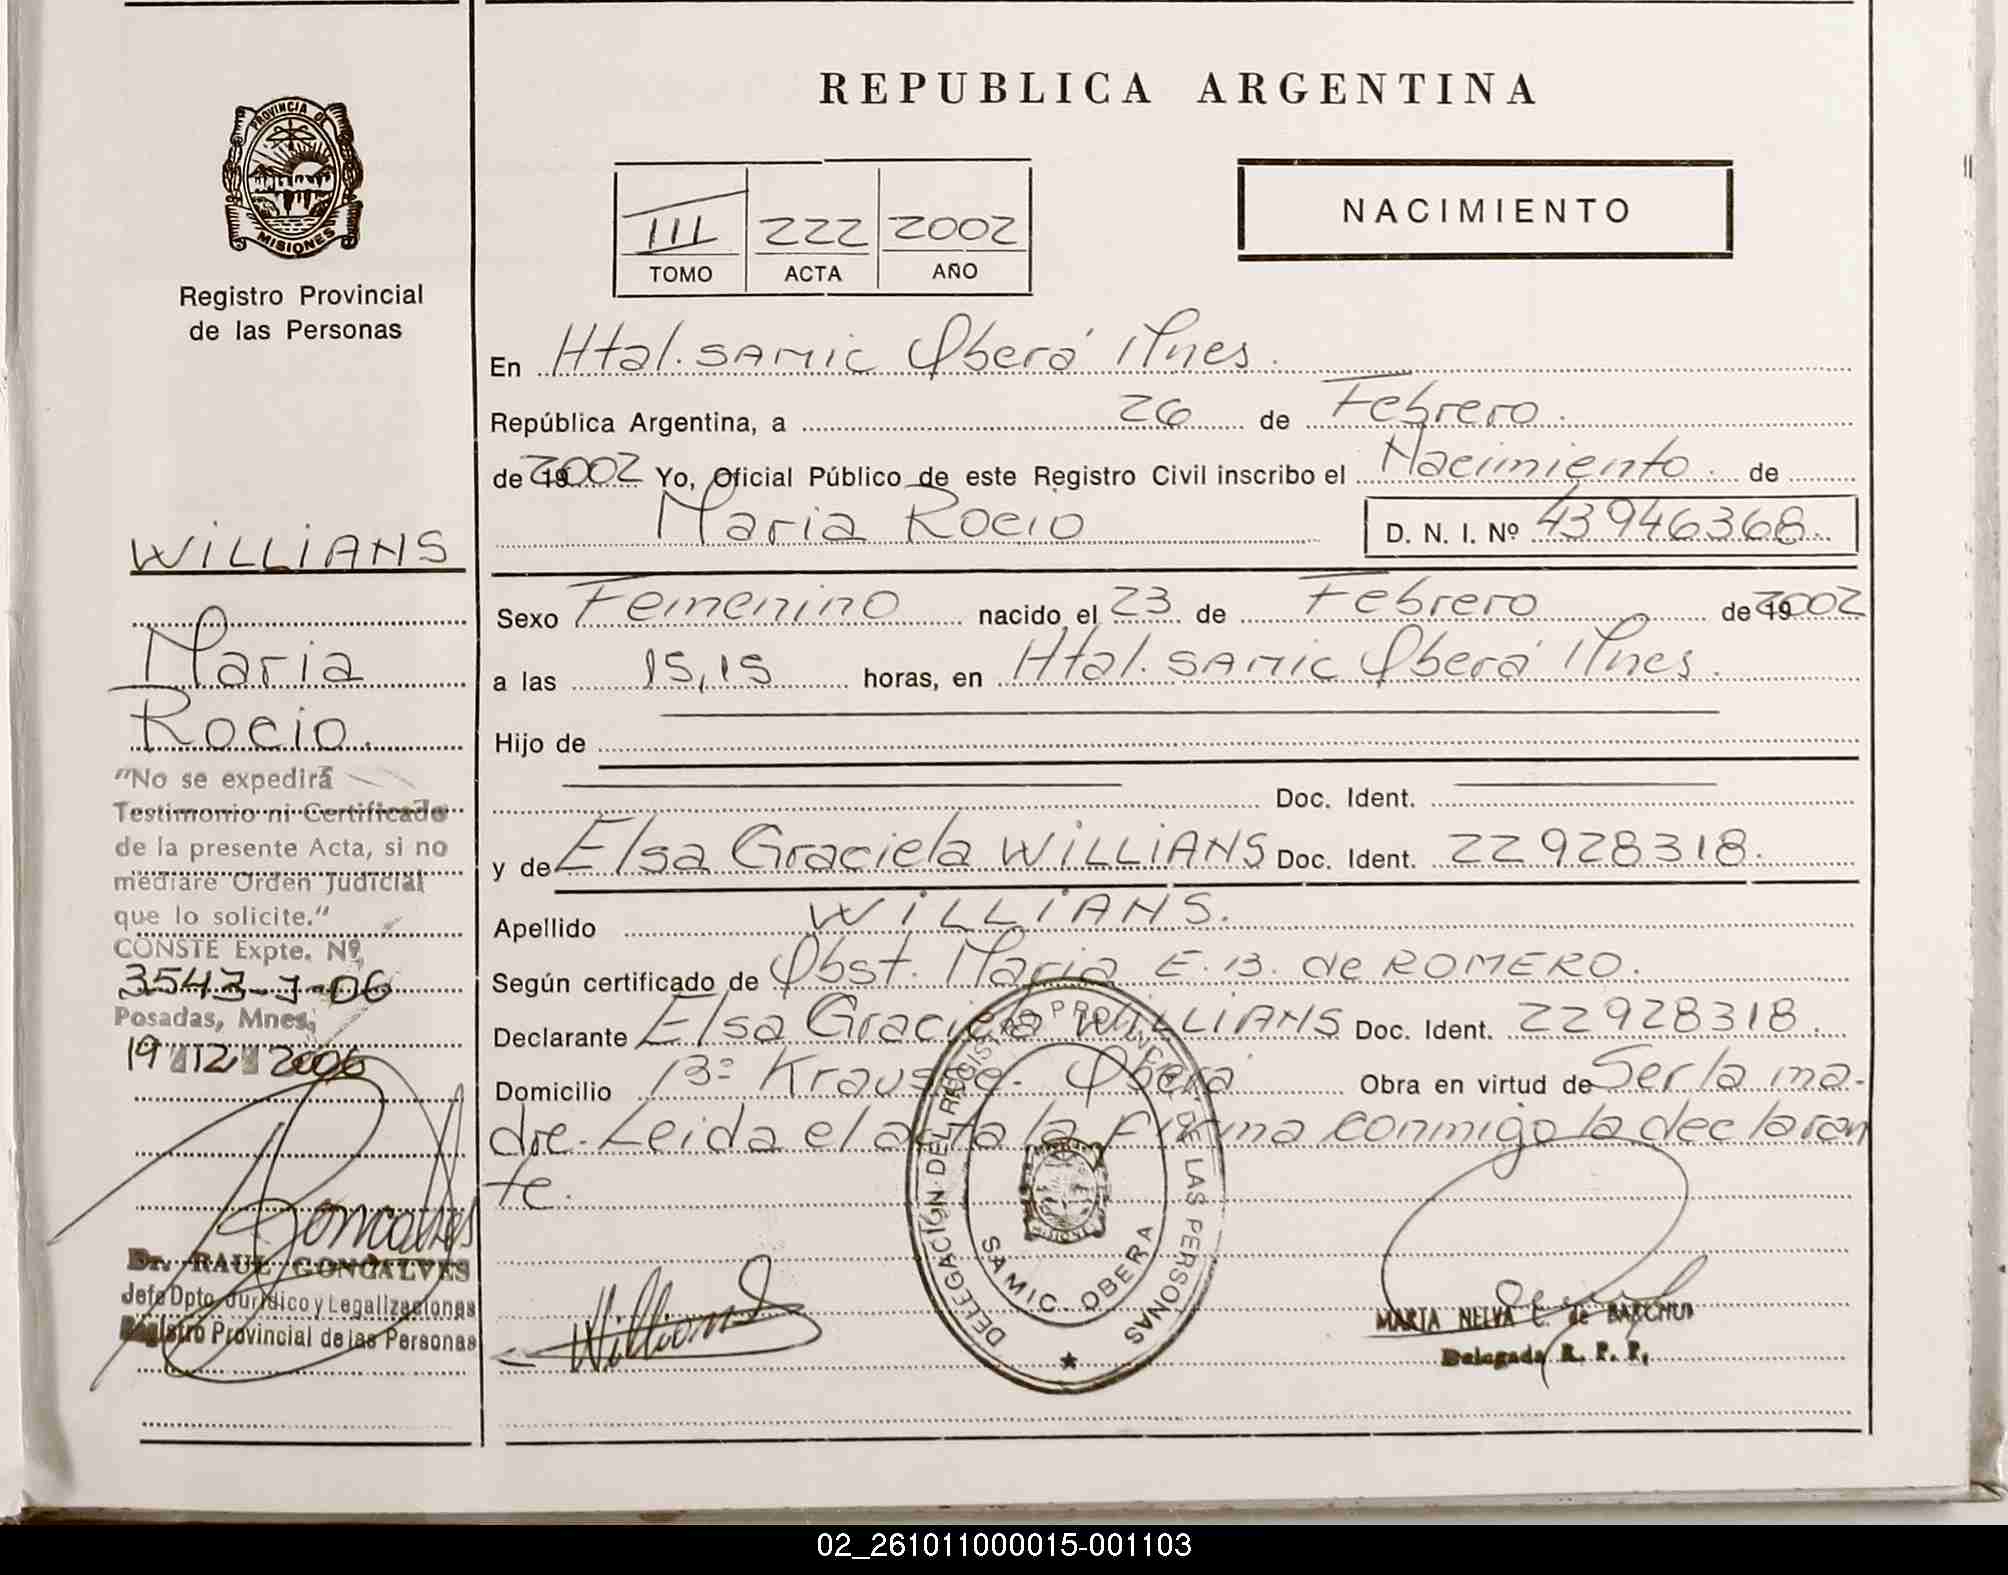 REPUBLICA ARGENTINA
PROVINCIA DE
MISIONES
Registro Provincial
de las Personas
III 222 2002
TOMO ACTA AÑO
NACIMIENTO
En Htal. SAMIC Oberá Mnes.
República Argentina, a 26 de Febrero.
de 19 2002 Yo, Oficial Público de este Registro Civil inscribo el Nacimiento. de
Maria Rocio D. N. I. Nº 43946368.
Sexo Femenino nacido el 23 de Febrero de 19 2002
a las 15,15 horas, en Htal. SAMIC Oberá Mnes.
Hijo de
Doc. Ident.
y de Elsa Graciela WiLLiANS Doc. Ident. 22928318.
Apellido WiLLiANS.
Según certificado de Obst. Maria E. B. de ROMERO.
Declarante Elsa Graciela WiLLiANS Doc. Ident. 22928318.
Domicilio Bº Krause. Oberá Obra en virtud de Ser la ma-
dre. Leida el acta la firma conmigo la declaran
te.
WiLLiANS
Maria
Rocio.
"No se expedirá
Testimonio ni Certificado
de la presente Acta, si no
mediare Orden Judicial
que lo solicite."
CONSTE Expte. Nº
3543-J-06
Posadas, Mnes,
19 12 2006
Goncalves
Dr. RAUL GONCALVES
Jefe Dpto. Jurídico y Legalizaciones
Registro Provincial de las Personas
Willians
DELEGACIÓN DEL REGISTRO PROVINCIAL DE LAS PERSONAS
SAMIC OBERA
MARIA NELVA C. de BARCHUK
Delegada R. P. P.
02_261011000015-001103